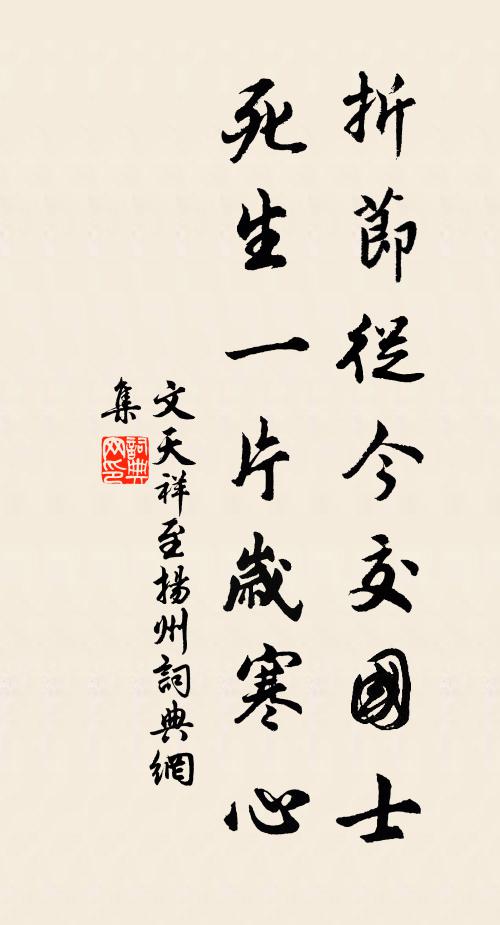 折節從今交國士
死生一片歲寒心
文天祥至揚州詞典網
集
詞典网印